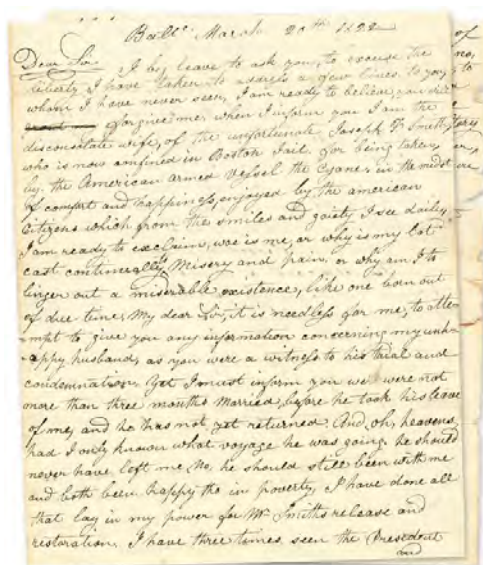 Balto March 20th 1822
Dear Sir I beg leave to ask you, to excuse the
liberty I have taken to address a few lines to you,
whom I have never seen, I am ready to believe you will
forgive me, when I inform you I am the
disconsolate wife, of the unfortunate Joseph F Smith,
who is now confined in Boston Jail for being taken,
by the American armed Vessel the Cyane, in the midst
of comfort and happiness, enjoyed by the american
citizens which from the smiles and gaiety I see daily
I am ready to exclaim, woe is me, or why is my lot
cast continually Misery and pain, or why am I to
linger out a miserable existence, like one born out
of due time, My dear Sir, it is needless for me, to atte-
-mpt to give you any information concerning my unh-
-appy husband, as you were a witness to his trial and
condemnation. Yet I must inform you we were not
more than three months Married, before he took his leave
of me, and he has not yet returned. And, oh, heavens,
had I only known what voyage he was going, he should
never have left me, No, he should still been with me
and both been happy tho in poverty, I have done all
that lay in my power for Mr Smiths release and
restoration. I have three times seen the Presedent
and